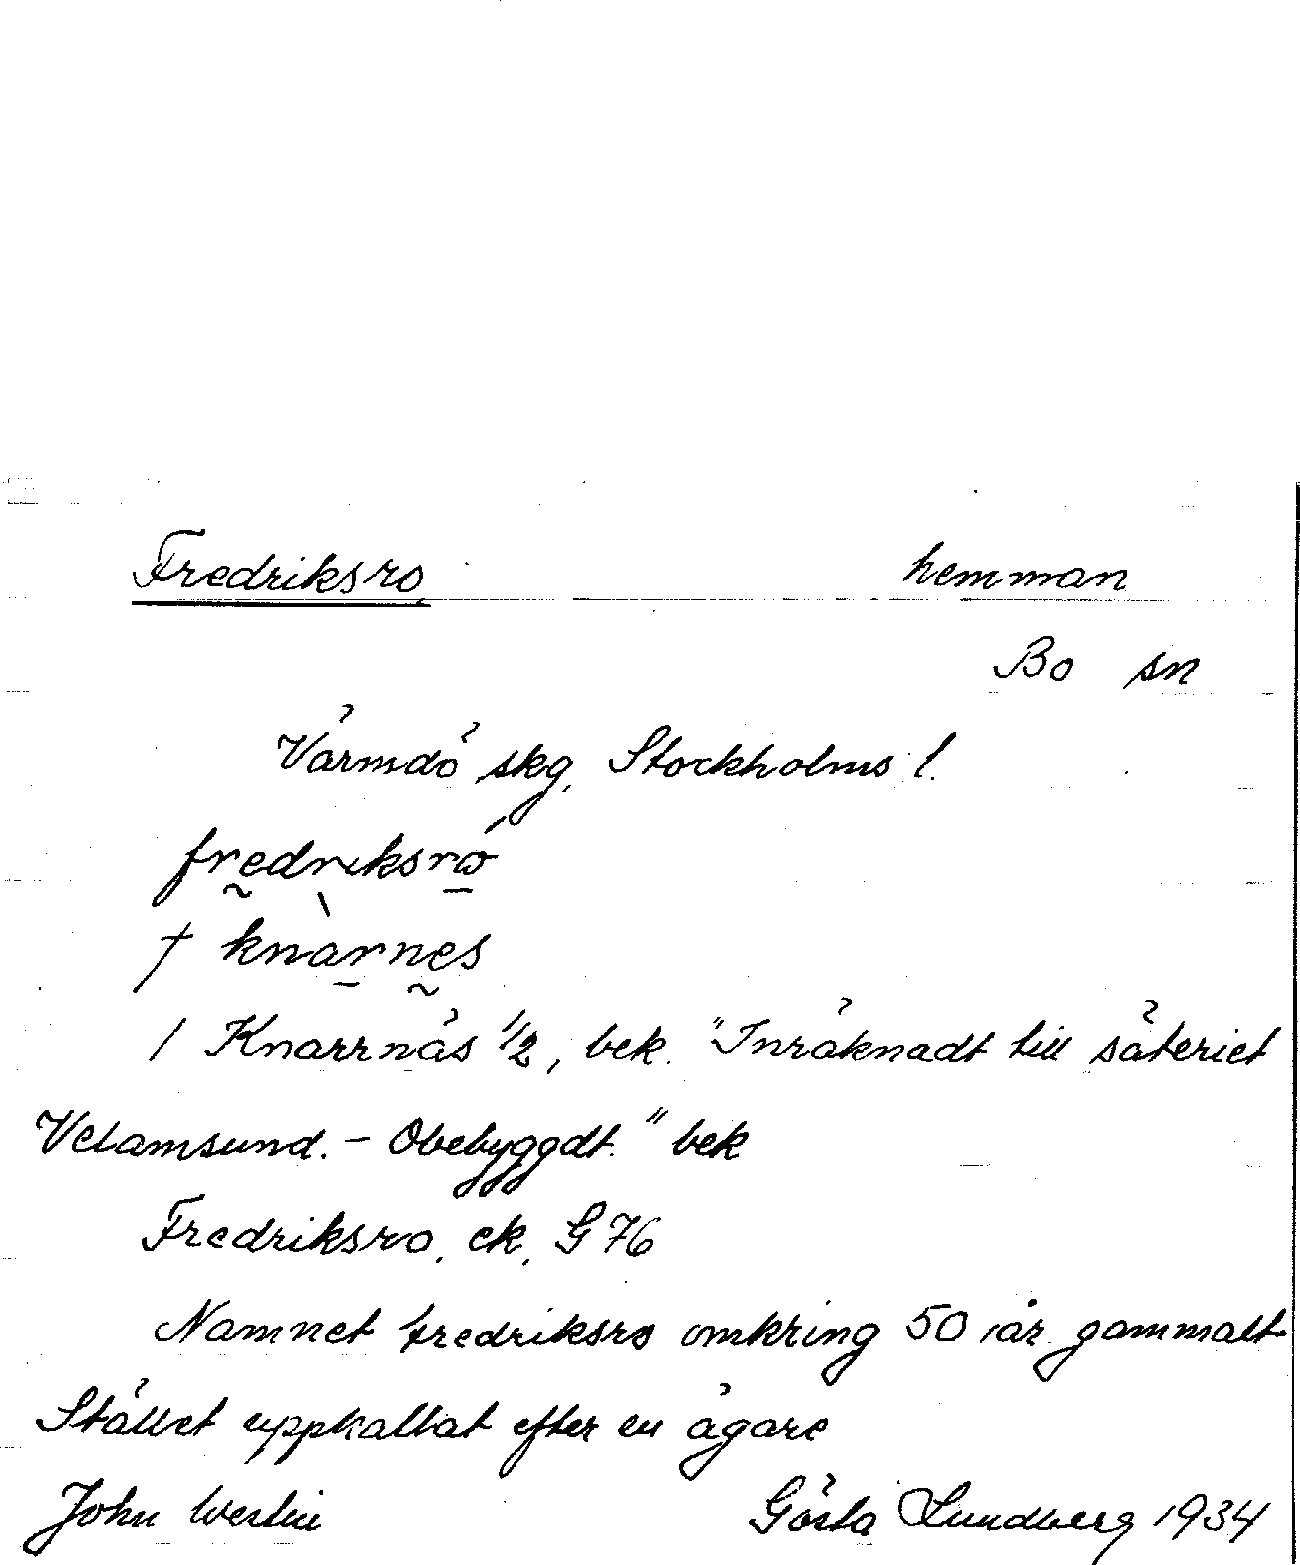 Fredriksro hemman
Bo sn
Värmdö skg, Stockholms l.
fredriksrώ
† knàrnes
/ Knarrnäs 1/2, bek. "Inräknadt till säteriet
Velamsund. - Obebyggdt." bek
Fredriksro, ek, G 76
Namnet Fredriksro omkring 50 år gammalt
Stället uppkallat efter en ägare
John Westin Gösta Lundberg 1934